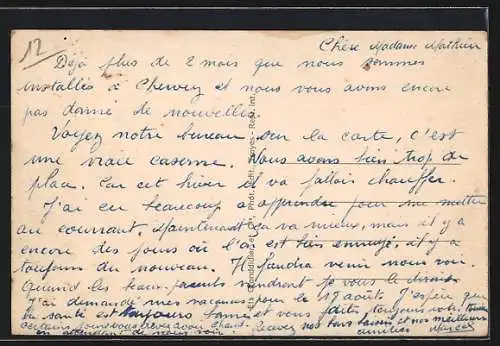 12
Chère Madame Mathieu
Déjà plus de 2 mois que nous sommes
installés à et nous vous avons encore
pas donné de nouvelles.
Voyez notre bureau sur la carte, c'est
une vraie caserne. Nous avons bien trop de
place. Car cet hiver il va falloir chauffer.
J'ai eu beaucoup a apprendre pour me mettre
au courant. Maintenant ça va mieux, mais il y a
encore des jours où l'on est bien ennuyé, il y a
toujours du nouveau. Il faudra venir nous voir.
Quand les beaux-parents viendront je vous le dirais.
J'ai demandé mes vacances pour le 17 août. J'espère que
la santé est toujours bonne et vous faites toujours votre
Recevez nos bons baisers et nos meilleures
en attendant de vous voir. amitiés Marcel